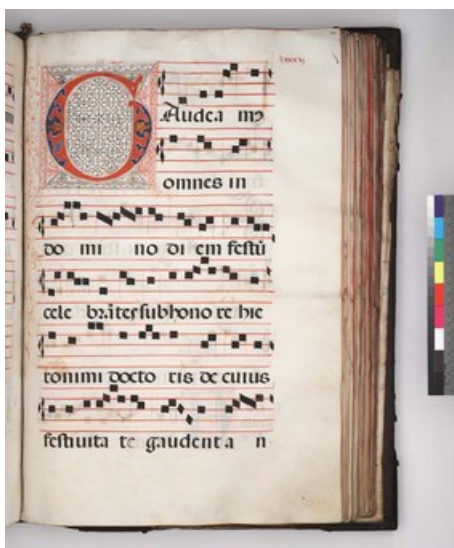 GAudea mꝰ
omnes in
do mi no di em festū
cele brātes sub hono re hie
ronimi docto ris de cuius
festiuita te gaudent a n